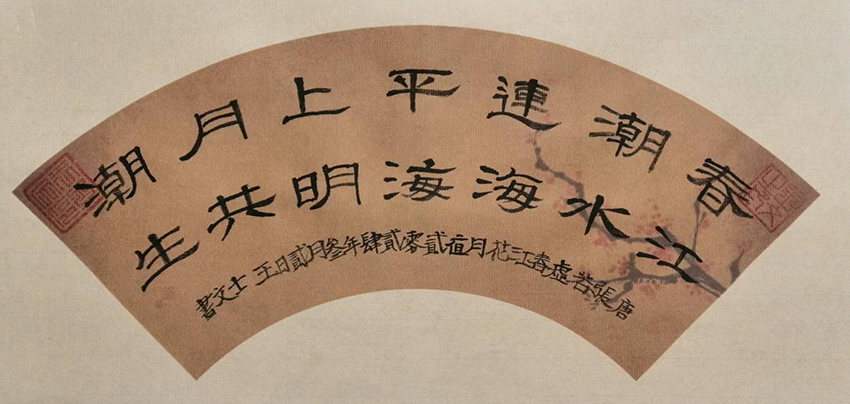 春江
潮水
連海
平海
上明
月共
潮生
唐張若虛春江花月亱貳零貳肆年叄月貳日王士文書